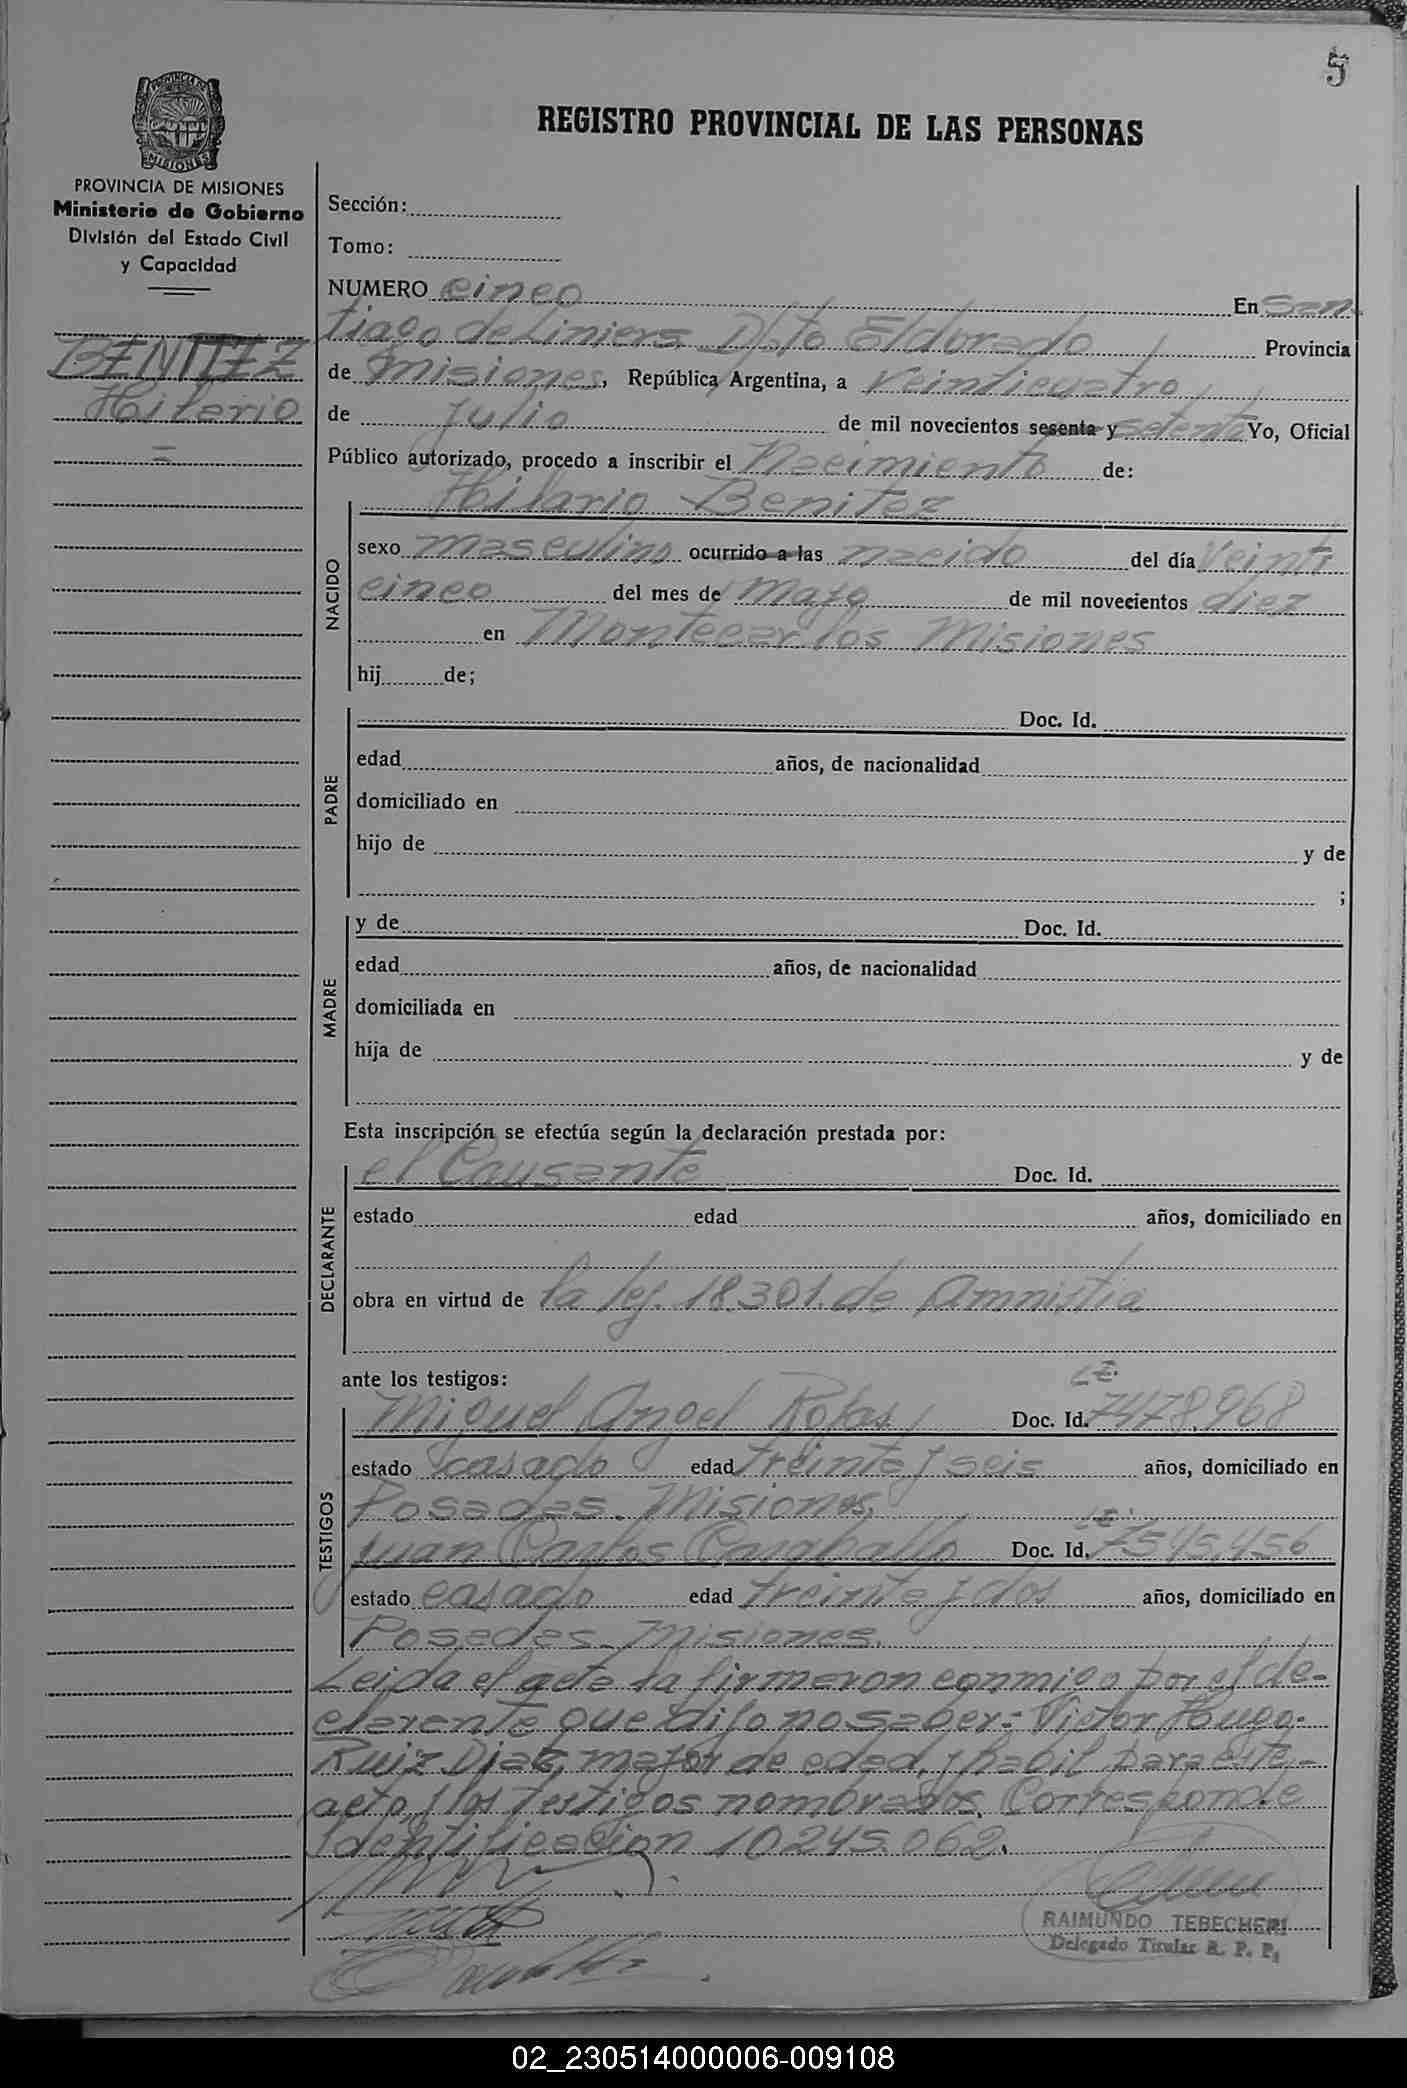 5
PROVINCIA DE MISIONES
REGISTRO PROVINCIAL DE LAS PERSONAS
PROVINCIA DE MISIONES
Ministerio de Gobierno
División del Estado Civil
y Capacidad
BENITEZ
Hilario
=
Sección:
Tomo:
NUMERO cinco En San-
tiago de Liniers Dpto Eldorado Provincia
de Misiones, República Argentina, a veinticuatro
de julio de mil novecientos sesenta y setenta Yo, Oficial
Público autorizado, procedo a inscribir el Nacimiento de:
Hilario Benitez
NACIDO
sexo masculino ocurrido a las nacido del día Veinti
cinco del mes de Mayo de mil novecientos diez
en Montecarlos Misiones
hij de;
PADRE
Doc. Id.
edad años, de nacionalidad
domiciliado en
hijo de y de
;
MADRE
y de Doc. Id.
edad años, de nacionalidad
domiciliada en
hija de y de
Esta inscripción se efectúa según la declaración prestada por:
DECLARANTE
el Causante Doc. Id.
estado edad años, domiciliado en
obra en virtud de la ley. 18.301. de Amnistia
ante los testigos:
TESTIGOS
L.E.
Miguel Angel Rojas Doc. Id. 7478,968
estado casado edad treinta y seis años, domiciliado en
Posadas. Misiones.
L.E.
Juan Carlos Caraballo Doc. Id. 7545,456
estado casado edad treinta y dos años, domiciliado en
Posadas- Misiones.
Leida el acta la firmaron conmigo por el de-
clarante que dijo no saber:- Victor Hugo-
Ruiz Diaz, mayor de edad, y habil para este-
acto, y los testigos nombrados, Corresponde
Identificacion 10245.062.
RAIMUNDO TEBECHERI
Delegado Titular R. P. P.
02_230514000006-009108